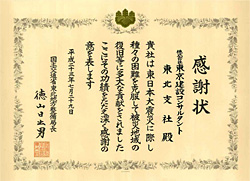 感謝状
株式会社東京建設コンサルタント
東北支社 殿
貴社は東日本大震災に際し
種々の困難を克服して被災地域の
復旧等に多大な貢献をされました
ここにその功績をたたえ深く感謝の
意を表します
平成二十三年七月二十九日
国土交通省東北地方整備局長
徳山日出男